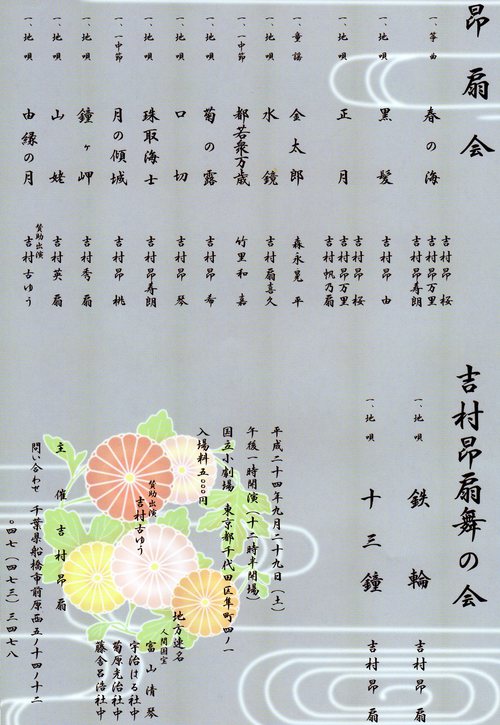 昂扇会
一、箏曲 春の海 吉村昂桜
吉村昂万里
吉村昂寿朗
一、地唄 黒髪 吉村昂由
一、地唄 正月 吉村昂桜
吉村昂万里
吉村帆乃扇
一、童謡 金太郎 森永晃平
一、地唄 水鏡 吉村扇喜久
一、一中節 都若衆万歳 竹里和嘉
一、地唄 菊の露 吉村昂希
一、地唄 口切 吉村昂琴
一、地唄 珠取海士 吉村昂寿朗
一、一中節 月の傾城 吉村昂桃
一、地唄 鐘ヶ岬 吉村秀扇
一、地唄 山姥 吉村英扇
一、地唄 由縁の月 賛助出演 吉村古ゆう
吉村昂扇舞の会
一、地唄 鉄輪 吉村昂扇
一、地唄 十三鐘 吉村昂扇
平成二十四年九月二十九日(土)
午後一時開演(十二時半開場)
国立小劇場 東京都千代田区隼町四ノ一
入場料五〇〇〇円
地方連名
人間国宝
富山清琴
宇治はる社中
菊原光治社中
藤舎呂浩社中
賛助出演
吉村古ゆう
主催 吉村昂扇
問い合わせ 千葉県船橋市前原西五ノ十四ノ十二
〇四七(四七三)三四七八